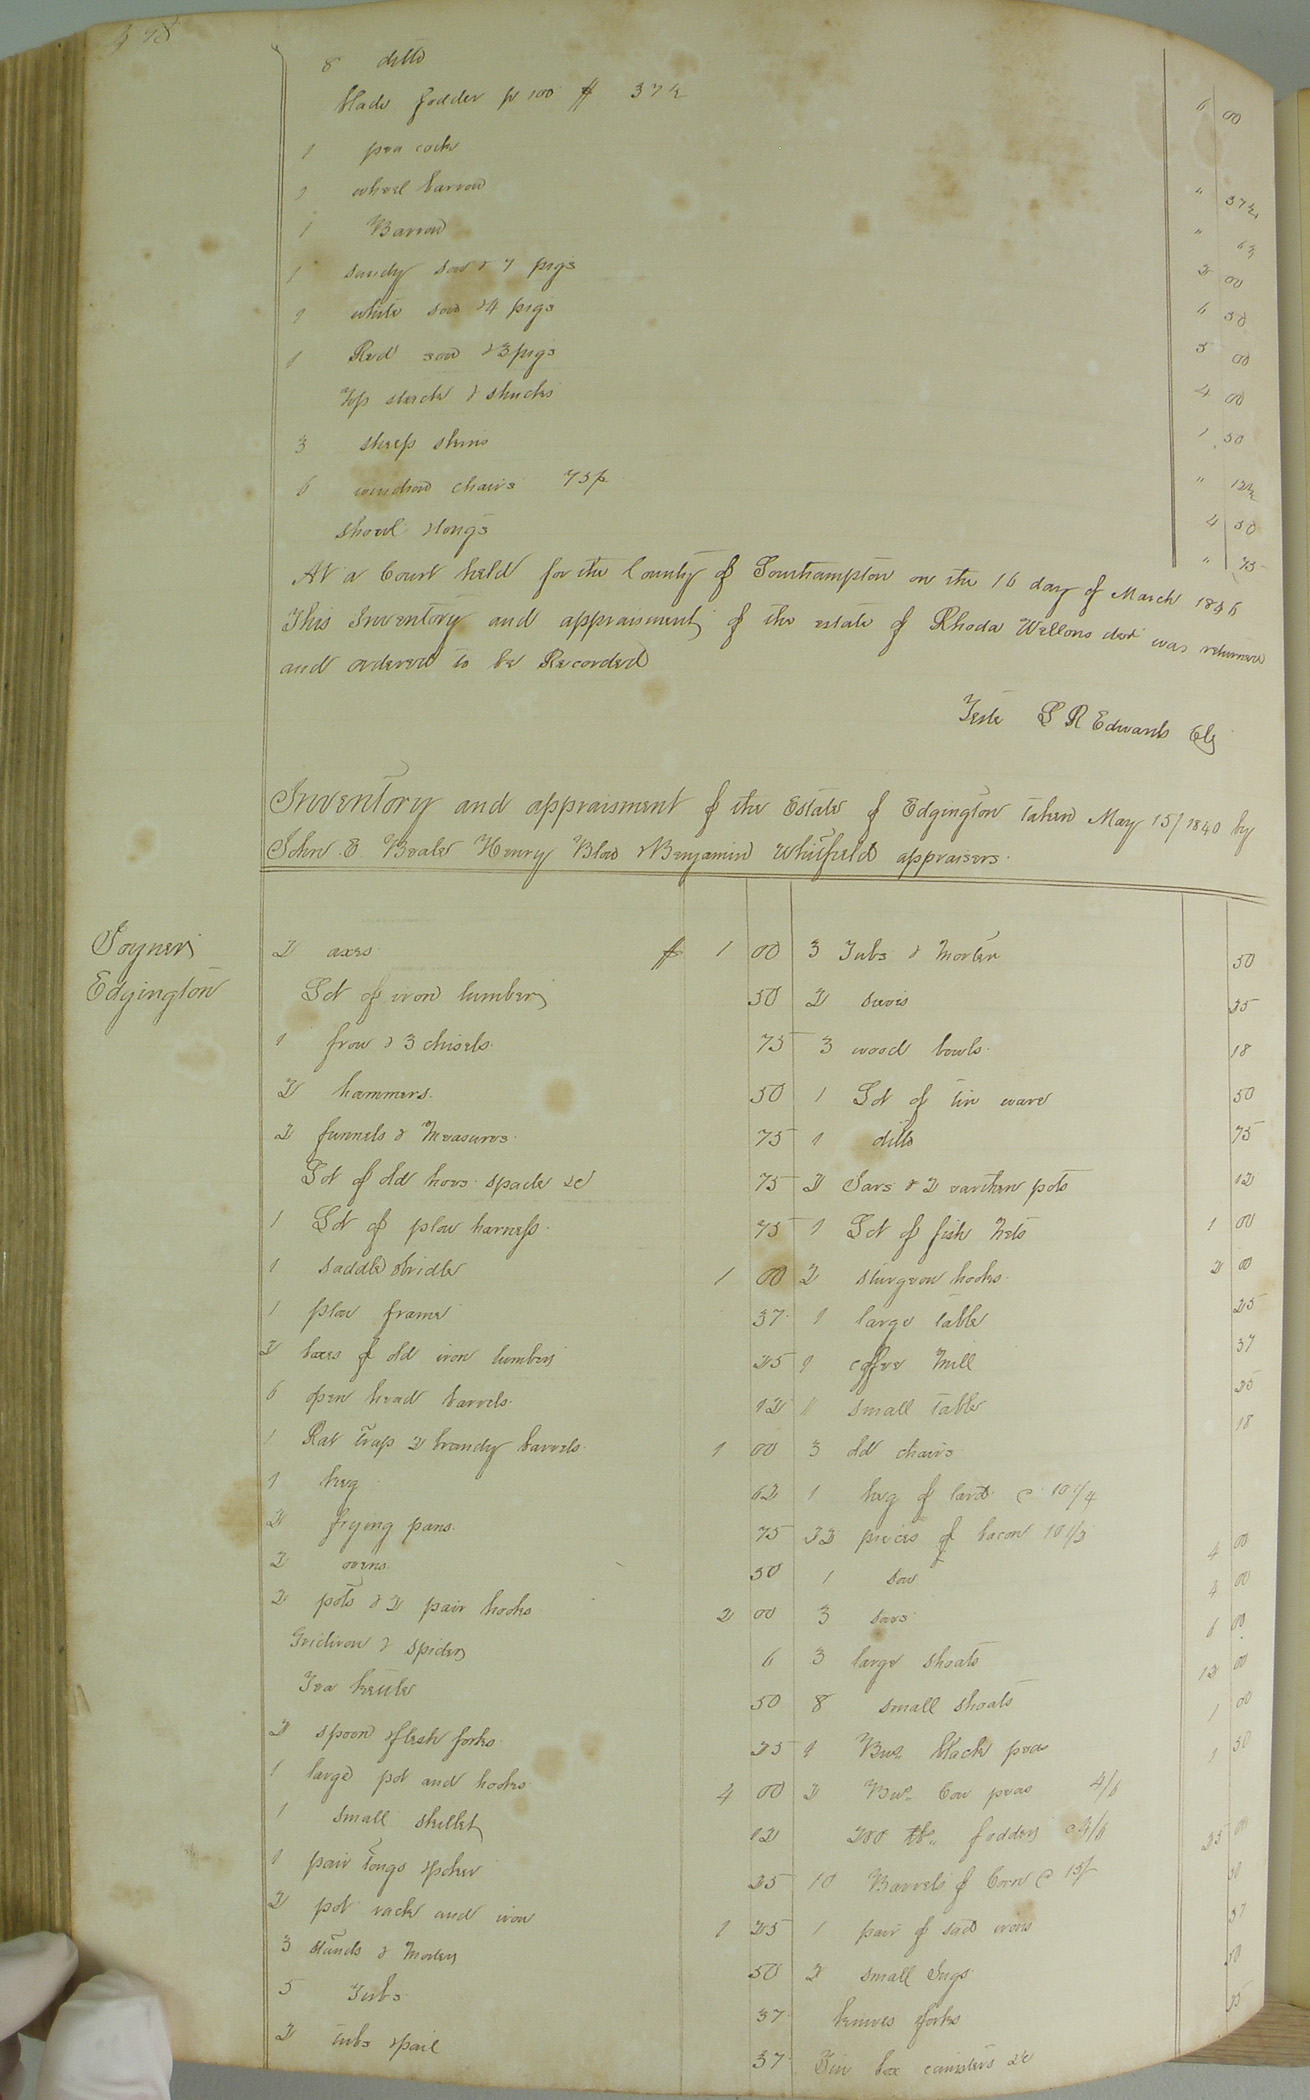 478
8 ditto
blade fodder pr 100 $ 37½ 6 00
1 pea cock
1 wheel barrow " 37½
1 Barrow " 63
1 sandy sow & 7 pigs 2 00
1 white sow & 4 pigs 6 50
1 Red sow & 3 pigs 5 00
Top stack & shucks 4 00
3 sheep skins 1 50
6 windsor chairs 75 " 12½
shovel & tongs 4 50
" 75
At a Court held for the County of Southampton on the 16 day of March 1846
This Inventory and appraisment of the estate of Rhoda Wellons decd was returned
and ordered to be Recorded
Teste L R Edwards Clk
Inventory and appraisment of the Estate of Edgington taken May 15/1840 by
John E Beale Henry Blow & Benjamin Whitfield appraisers
Joyner
Edgington
2 axes $ 1 00
Lot of iron lumber 50
1 frow & 3 chisels 75
2 hammers 50
2 funnels & Measures 75
Lot of old hoes spade &c 75
1 Lot of plow harness 75
1 saddle & bridle 1 00
1 plow frame 37
2 boxes of old iron lumber 25
6 open head barrels 12
1 Rat trap 2 brandy barrels 1 00
1 keg 62
2 frying pans 75
2 ovens 50
2 pots & 2 pair hooks 2 00
Gridiron & spider 6
Tea kettle 50
2 spoon & flesh forks 25
1 large pot and hooks 4 00
1 small skillet 12
1 pair tongs & poker 25
2 pot rack and iron 1 25
3 stands & Morter 50
5 Tubs 37
2 tubs & pail 37
3 Tubs & Morter 50
2 sieves 25
3 wood bowls 18
1 Lot of tin ware 50
1 ditto 75
2 Jars & 2 earthen pots 12
1 Lot of fish Nets 1 00
2 sturgeon hooks 2 00
1 large table 25
1 coffee Mill 37
1 small table 25
3 old chairs 18
1 keg of lard @ 10 1/4
22 pieces of bacon 10 1/3
1 sow 4 00
3 sows 4 00
3 large shoats 6 00
8 small shoats 12 00
1 Bus black peas 1 00
2 Bus Cow peas 4/6 1 50
200 lb fodder @ 3/6
10 Barrels of Corn @ 15/ 25 00
1 pair of sad irons 50
2 small Jugs 37
knives & forks 50
Tin box canisters &c 25